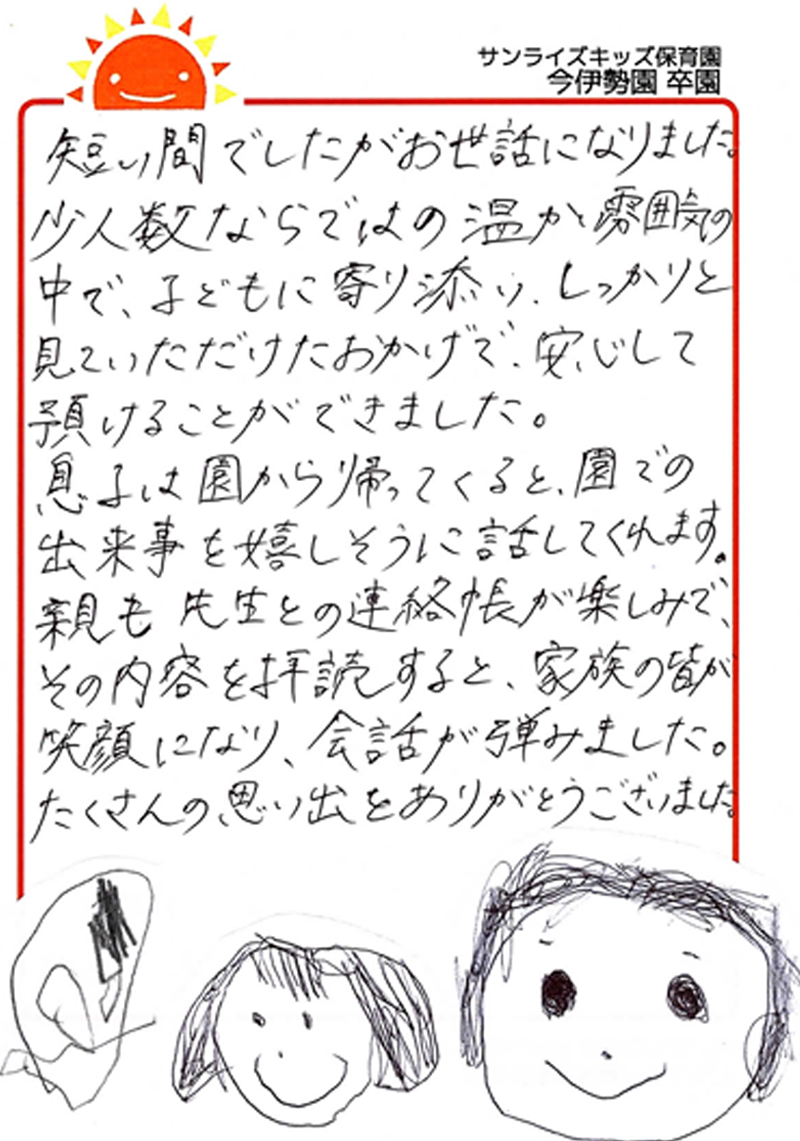 サンライズキッズ保育園
今伊勢園 卒園
短い間でしたがお世話になりました。
少人数ならではの温かい雰囲気の
中で、子どもに寄り添い、しっかりと
見ていただけたおかげで、安心して
預けることができました。
息子は園から帰ってくると、園での
出来事を嬉しそうに話してくれます。
親も先生との連絡帳が楽しみで、
その内容を拝読すると、家族の皆が
笑顔になり、会話が弾みました。
たくさんの思い出をありがとうございました